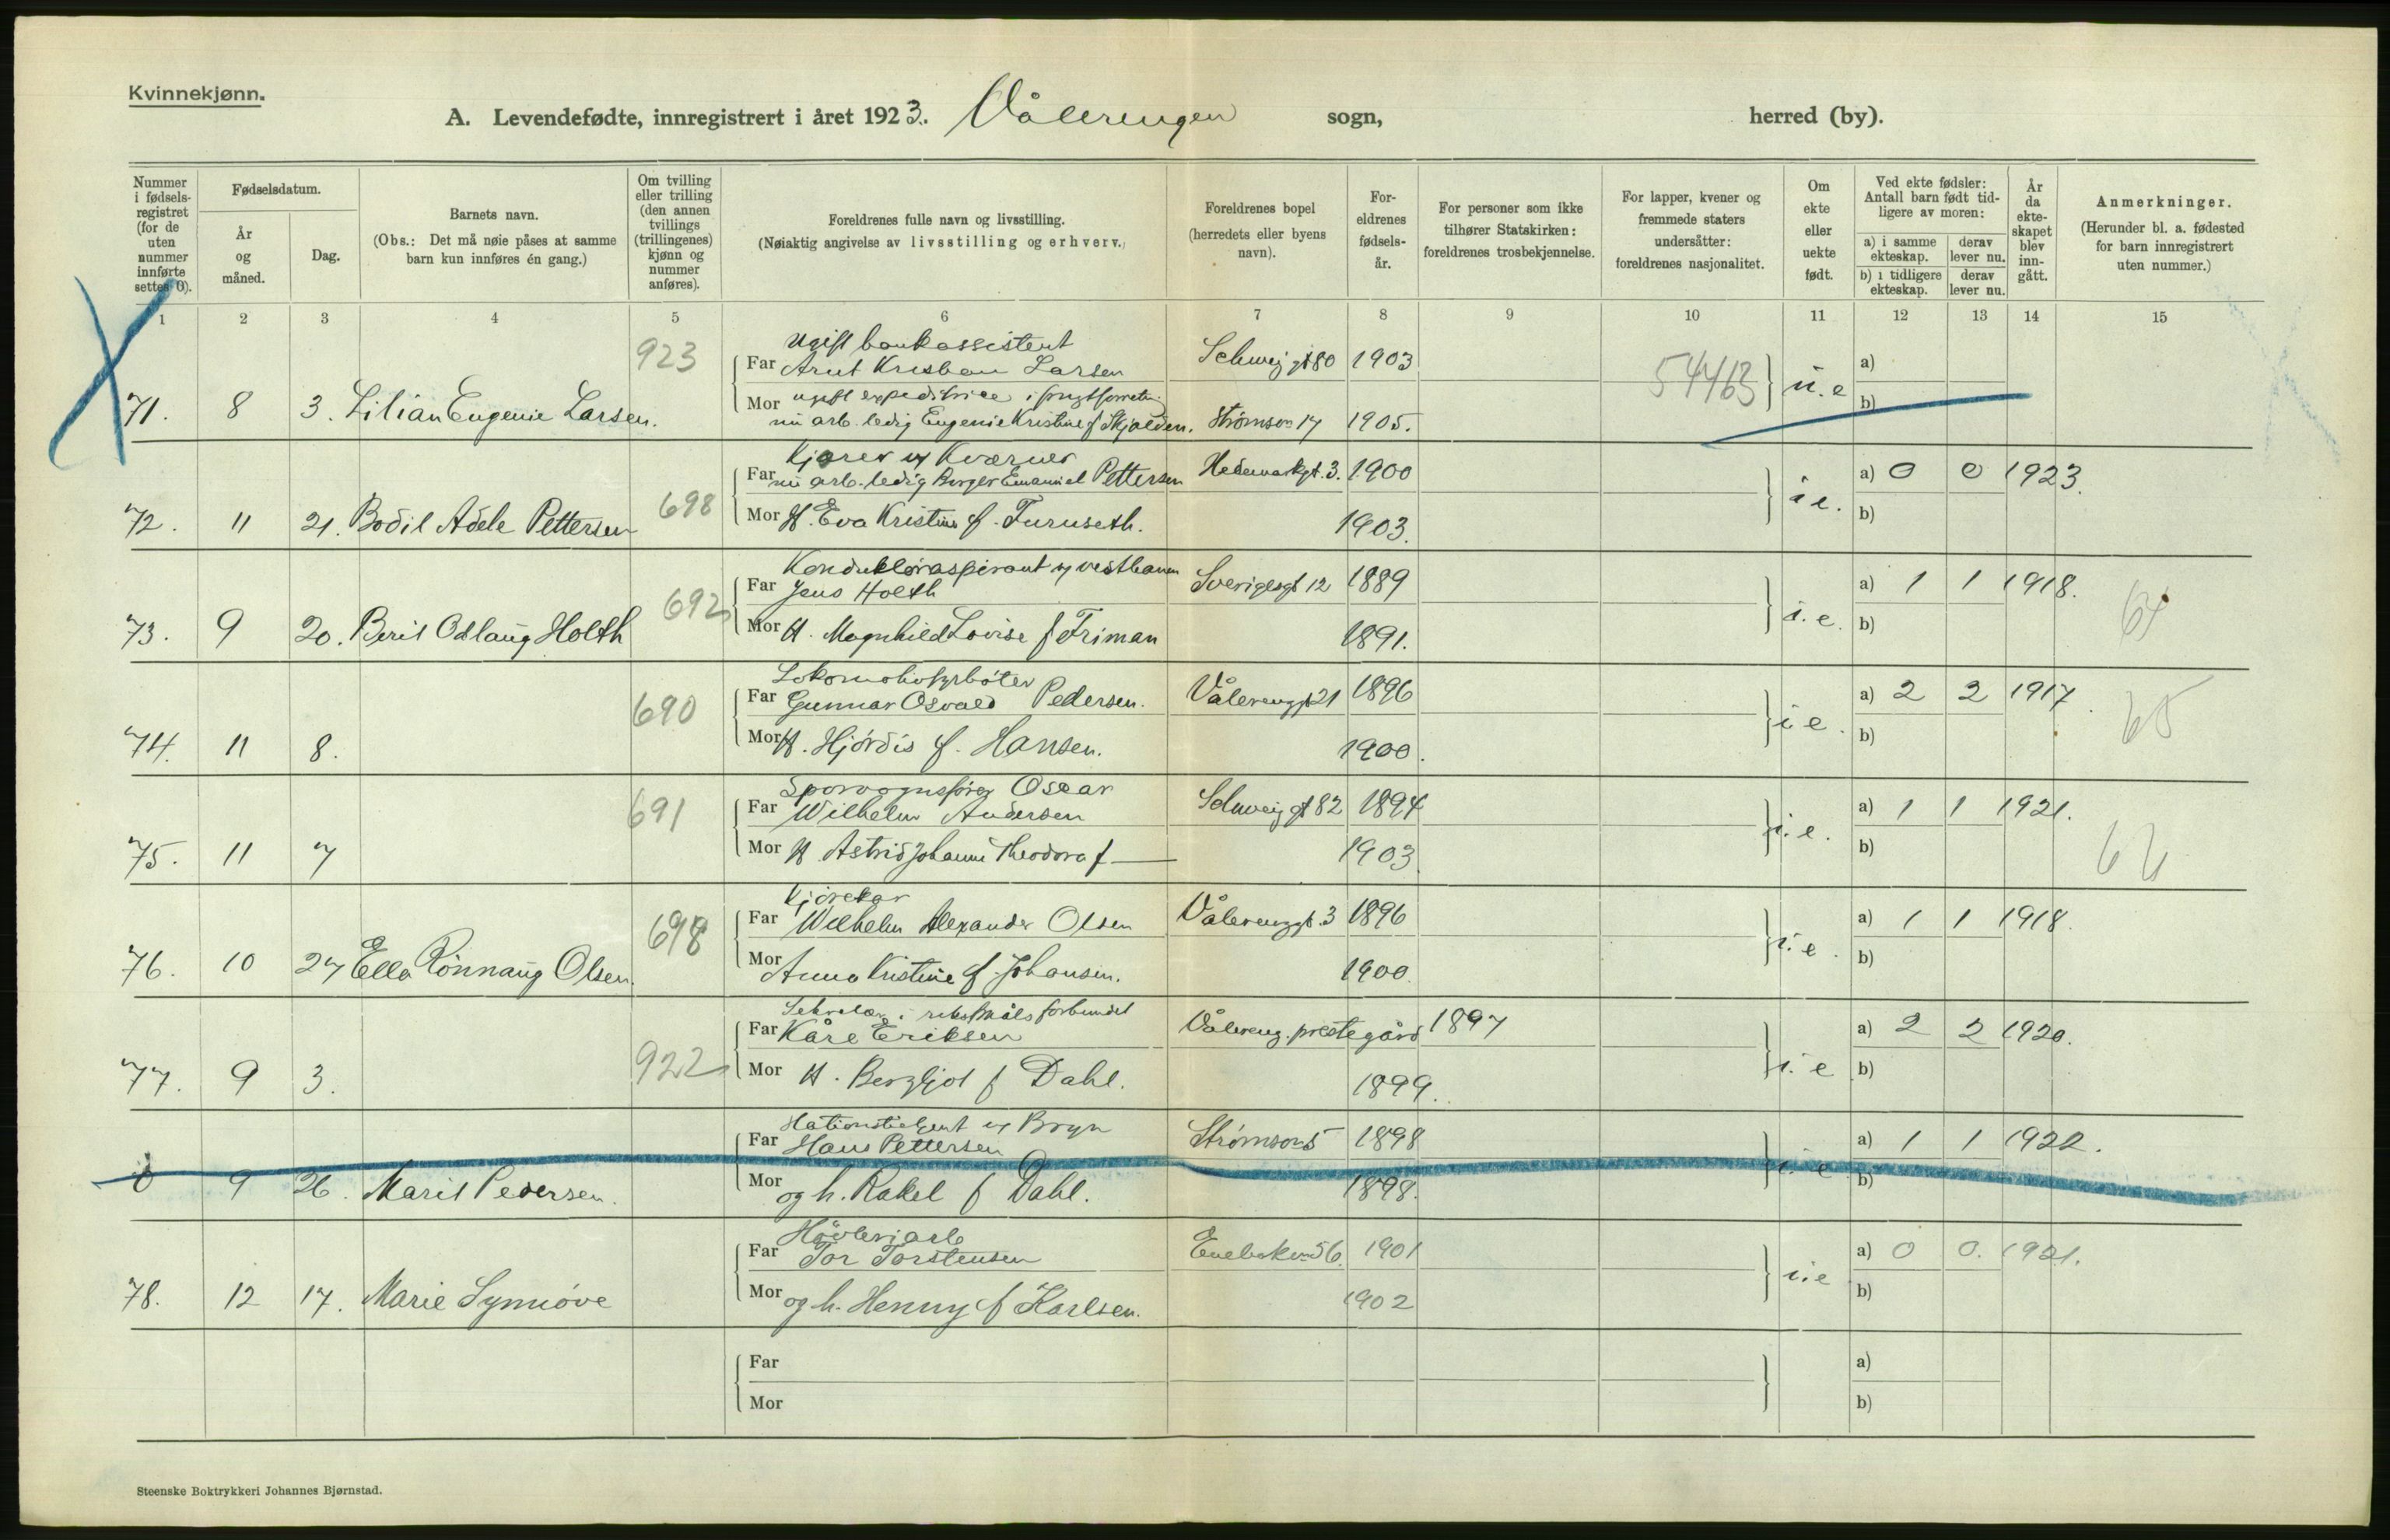 Kvinnekjønn.
A. Levendefødte, innregistrert i året 1923. Vålerengen sogn, herred (by).
Nummer i fødsels-registret (for de uten nummer innførte settes 0).
Fødselsdatum.
År og måned.
Dag.
Barnets navn.
(Obs.: Det må nøie påses at samme barn kun innføres én gang.)
Om tvilling eller trilling (den annen tvillings (trillingenes) kjønn og nummer anføres).
Foreldrenes fulle navn og livsstilling.
(Nøiaktig angivelse av livsstilling og erhverv.)
Foreldrenes bopel (herredets eller byens navn).
For-eldrenes fødsels-år.
For personer som ikke tilhører Statskirken: foreldrenes trosbekjennelse.
For lapper, kvener og fremmede staters undersåtter: foreldrenes nasjonalitet.
Om ekte eller uekte født.
Ved ekte fødsler: Antall barn født tid-ligere av moren:
a) i samme ekteskap.
derav lever nu.
b) i tidligere ekteskap.
derav lever nu.
År da ekte-skapet blev inn-gått.
Anmerkninger.
(Herunder bl. a. fødested for barn innregistrert uten nummer.)
1 2 3 4 5 6 7 8 9 10 11 12 13 14 15
923 Ugift bankassistent
Far Larsen Schweigt 80 1903 54463 u.e a)
71. 8 3. Lilian Eugenie Larsen. Mor ugift expeditrice i b)
nu arb. ledig Eugenie Kristine f Skjolden. Strømsvn 17 1905.
Kjører v/ Kværner
Far nu arb. ledig Birger Emanuel Pettersen Hedemarkgt. 3. 1900 a) 0 0 1923.
72. 11 21. Bodil Adele Pettersen 698 Mor H. Eva Kristine f. Furuseth. 1903. i e. b)
Konduktøraspirant v/ vestbanen
Far Jens Holth Sverigesgt 12 1889 a) 1 1 1918.
73. 9 20. Berit Odlaug Holth 692 Mor H. Magnhild Lovise f Friman 1891. i. e. b) 64
Lokomotivfyrbøter
Far Gunnar Osvald Pedersen. Vålerenggt 21 1896 a) 2 2 1917.
74. 11 8. 690 Mor H. Hjørdis f. Hansen. 1900. i e. b) 65
Sporvognsfører Oscar
Far Wilhelm Andersen Schweigt 82 1894 a) 1 1 1921.
75. 11 7 691 Mor H Astrid Johanne Theodora f — 1903 i. e. b)
Kjørekar
Far Wilhelm Alexander Olsen Vålerenggt. 3 1896 a) 1 1 1918.
76. 10 27 Ella Rönnaug Olsen. 698 Mor Anna Kristine f Johansen. 1900. i. e. b)
Sekretær i riksmålsforbundet
Far Kåre Eriksen Vålereng. prestegård 1897 a) 2 2 1920.
77. 9 3. 922 Mor H. Bergljot f Dahl. 1899. i. e b)
v/ Bryn
Far Hans Pettersen Strømsvn 5 1898 a) 1 1 1922.
0 9 26. Marit Pedersen. Mor og h. Rakel f Dahl. 1898. i. e b)
Høvleriarb
Far Tor Torstensen Enebakvn 56. 1901 a) 0 0. 1921.
78. 12 17. Marie Synnöve Mor og h. Henny f Karlsen. 1902 i.e b)
Far a)
Mor b)
Steenske Boktrykkeri Johannes Bjørnstad.